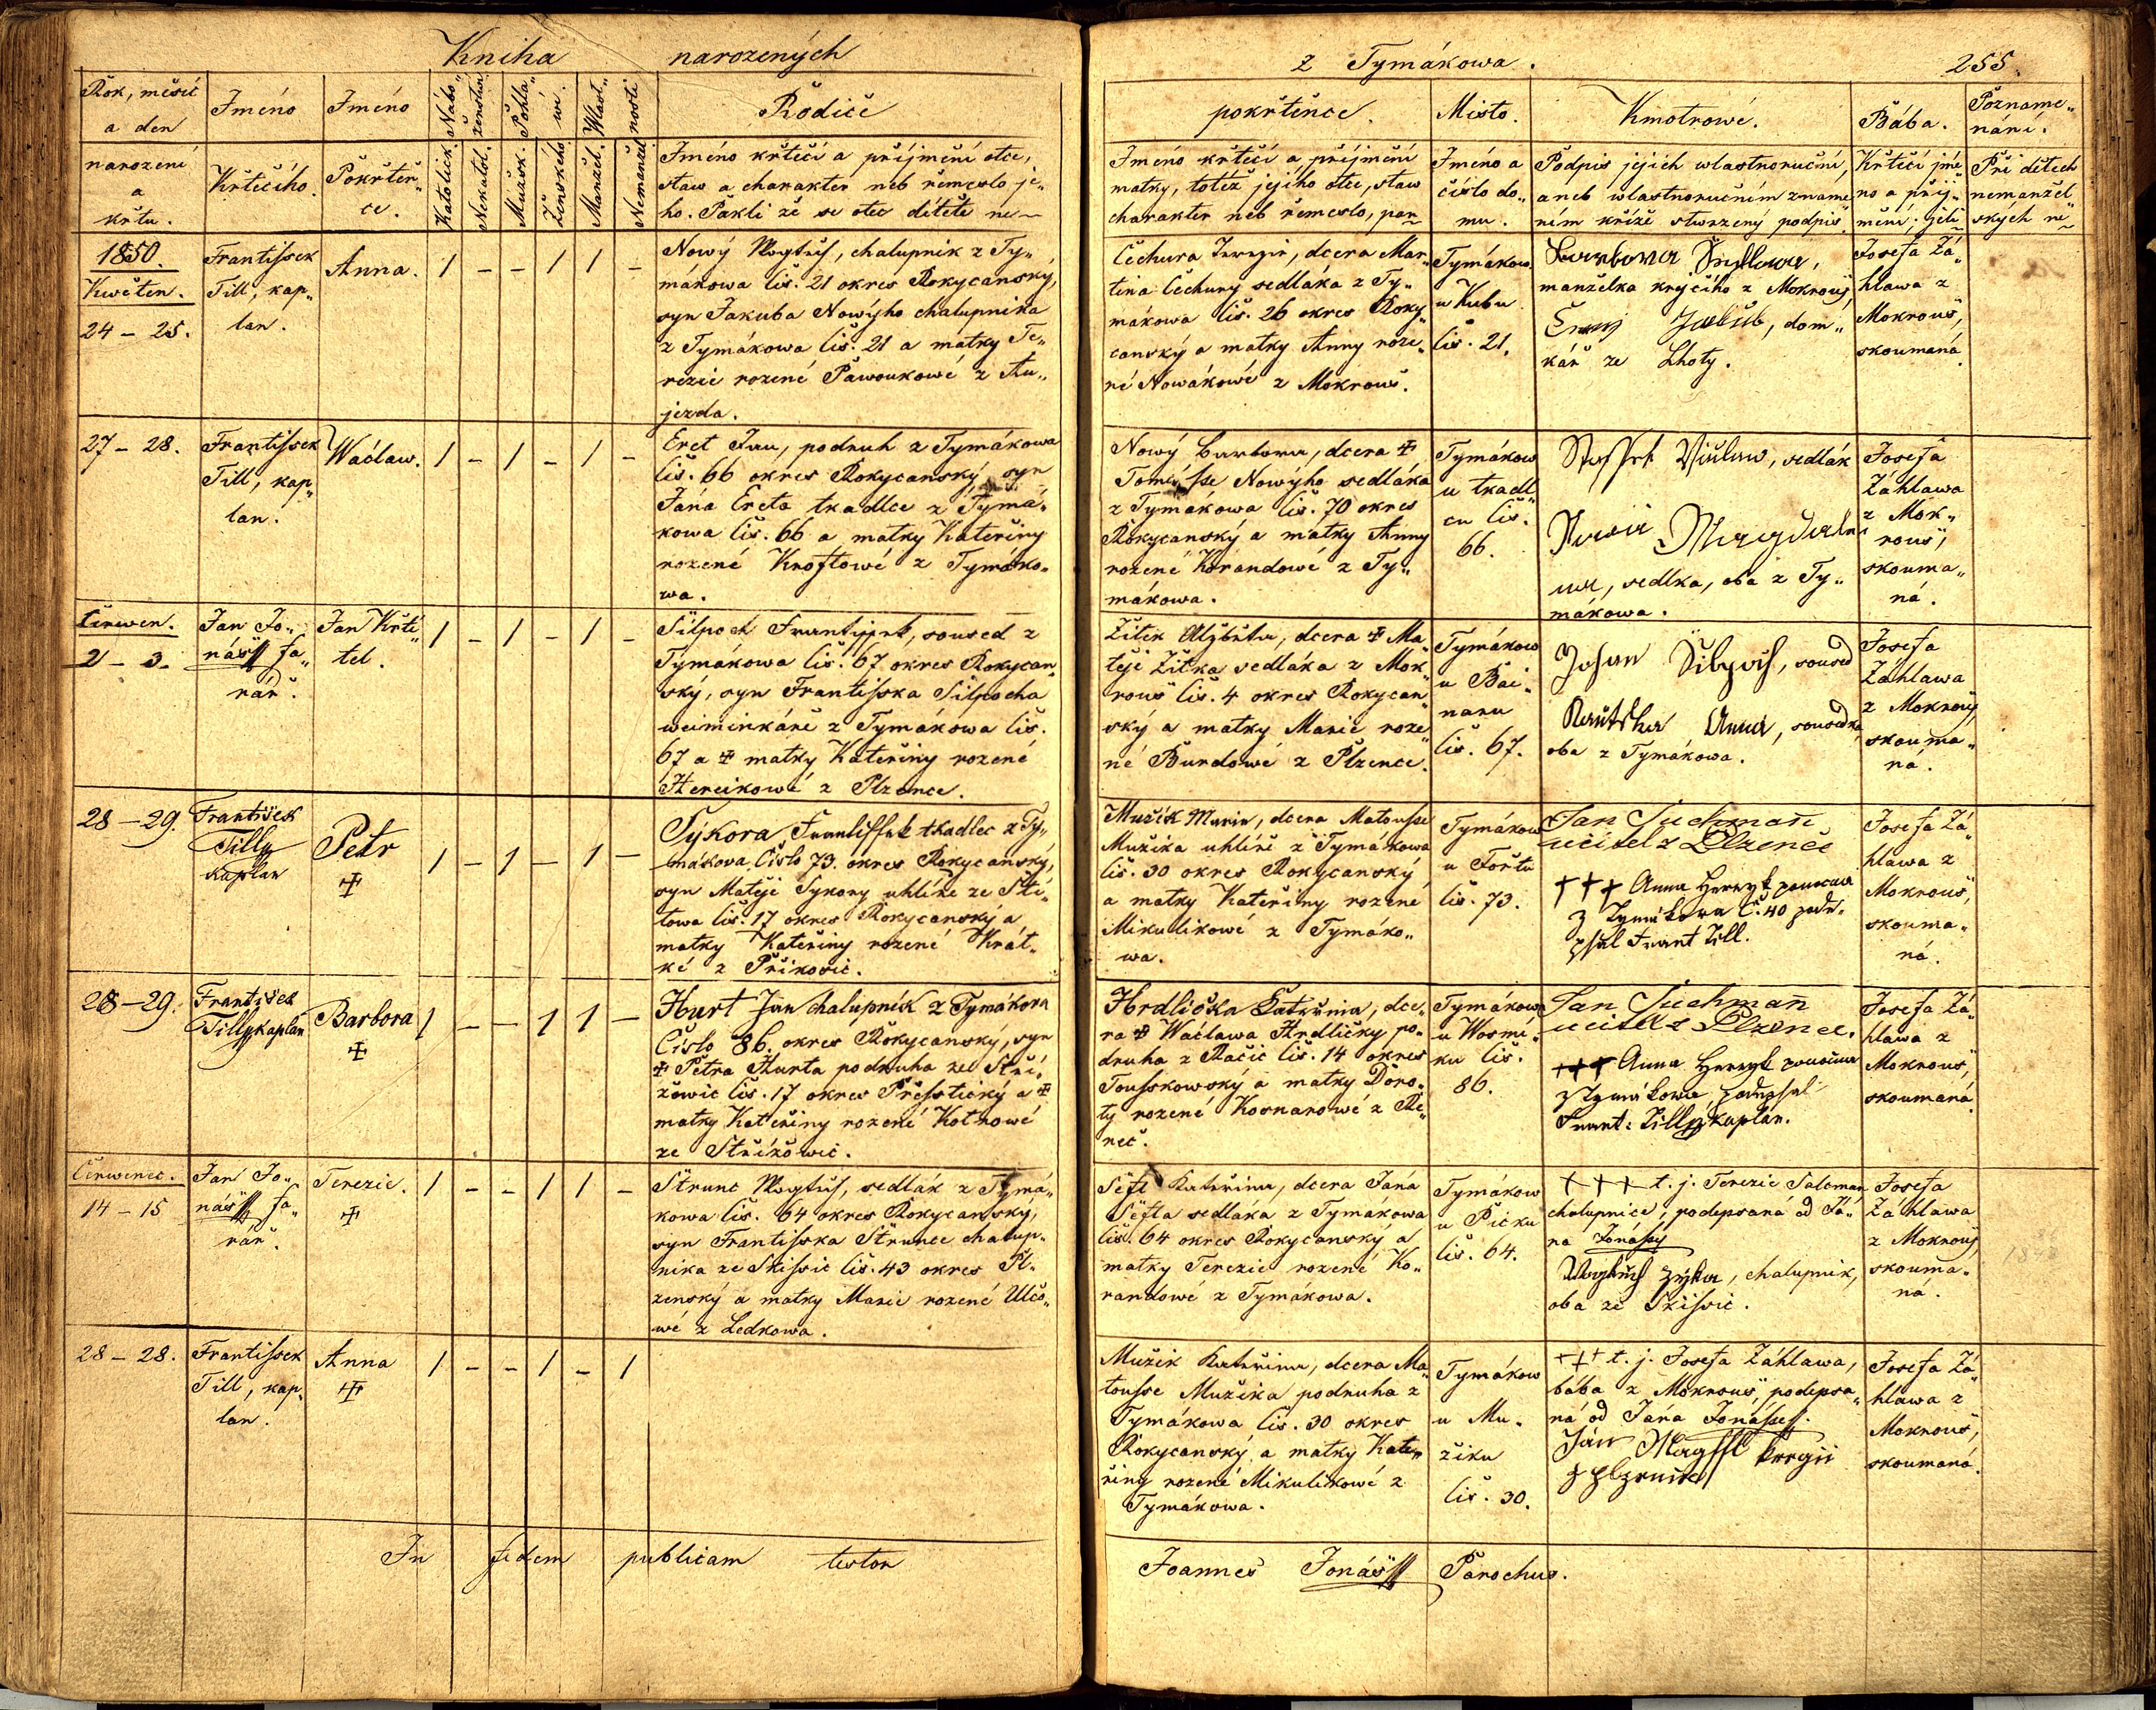 Kniha narozených
Rok, měsíc
a den
narození
a
křtu.
Jméno
Křtícího.
Jméno
Pokřtěn„
ce.
Nábo„
ženstwí
Katolick.
Nekatol.
Pohla„
wí.
Mužsk.
Ženského
Wlast„
nosti
Manžel.
Nemanžel
Rodiče
Jméno křtící a příjmění otce,
staw a charakter neb řemeslo je„
ho. Pakli že se otec dítěte ne~
1850.
Kwěten.
24 – 25.
Frantissek
Till, kap„
lan.
Anna.
1 – – 1 1 –
Nowý Wogtěch, chalupník z Ty„
mákowa čis. 21 okres Rokycanský,
syn Jakuba Nowýho chalupníka
z Tymákowa čis. 21 a matky Te„
rezie rozené Pawoukowé z Au„
jezda.
27 – 28.
Frantissek
Till, kap„
lan.
Wáclaw.
1 – 1 – 1 –
Eret Jan, podruh z Tymákowa
čis. 66 okres Rokycanský, syn
Jána Ereta tkadlce z Tymá„
kowa čis. 66 a matky Kateřiny
rozené Kroftowé z Tymáko„
wa.
Čerwen.
2 – 3.
Jan Jo„
náss fa„
rář.
Jan Křti„
tel.
1 – 1 – 1 –
Silpoch Frantissek, soused z
Tymákowa čis. 67 okres Rokycan„
ský, syn Frantisska Silpocha
weiminkáře z Tymákowa čis.
67 a ✠ matky Kateřiny rozené
Hereikowé z Plzence.
28 – 29.
František
Tilly
kaplan
Petr
✠
1 – 1 – 1 –
Sýkora Frantissek tkadlec z Ty„
mákova Číslo 73. okres Rokycanský,
syn Matěje Sykory uhlíře ze Stí„
towa čis. 17 okres Rokycanský a
matky Kateřiny rozené Krát„
ké z Příkosic.
28 – 29.
František
Tilly kaplan
Barbora
✠
1 – – 1 1 –
Hurt Jan chalupník z Tymákova
Číslo 86. okres Rokycanský, syn
✠ Petra Hurta podruha ze Stří„
žowic čis. 17 okres Přesstický a ✠
matky Kateřiny rozené Kotrowé
ze Střížowic.
Čerwenec.
14 – 15
Jan Jo„
náss fa„
rář.
Terezie.
✠
1 – – 1 1 –
Strunc Wogtěch, sedlák z Tymá„
kowa čis. 64 okres Rokycanský,
syn Frantisska Strunce chalup„
níka ze Skissic čis. 43 okres Pl„
zenský a matky Marie rozené Ulčo„
wé z Ledkowa.
28 – 28.
Frantissek
Till, kap„
lan.
Anna
✠
1 – – 1 – 1
In fidem publicam testor
z Tymákowa.
255.
pokřtěnce.
Jméno křtící a příjmění
matky, totéž jejího otce, staw
charakter neb řemeslo, pon~
Místo.
Jméno a
číslo do„
mu.
Kmotrowé.
Podpis jejich wlastnoruční,
aneb wlastnoručním zname„
ním kříže stwrzený podpis.
Bába.
Křtící jmé„
no a příj„
mění; jeli
Pozname„
nání.
Při dětech
nemanžel„
ských ne~
Čechura Terezie, dcera Mar„
tina Čechury sedláka z Ty„
mákowa čis. 26 okres Roky„
canský a matky Anny roze„
né Nowákowé z Mokrouš.
Tymákow
u Kubu
čis. 21.
manželka krejčího z Mokrouš,
Jakub, dom„
kář ze Lhoty.
Josefa Zá„
hlawa z
Mokrouš,
skoumaná.
Nowý Barbora, dcera ✠
Tomásse Nowýho sedláka
z Tymákowa čis. 70 okres
Rokycanský a matky Anny
rozené Korandowé z Ty„
mákowa.
Tymákow
u tkadl„
cu čis.
66.
Wáclaw, sedlák
Magdale„
na, sedlka, oba z Ty„
mákowa.
Josefa
Záhlawa
z Mok„
rouš,
skouma„
ná.
Žitek Alžběta, dcera ✠ Ma„
těje Žitka sedláka z Mok„
rouš čis. 4 okres Rokycan„
ský a matky Marie roze„
né Burdowé z Plzence.
Tymákow
u Bai„
naru
čis. 67.
Johan Silpoch, soused
Anna, sousedka
oba z Tymákowa.
Josefa
Záhlawa
z Mokrouš,
skouma„
ná.
Mužík Marie, dcera Matousse
Mužíka uhlíře z Tymákowa
čis. 30 okres Rokycanský
a matky Kateřiny rozené
Mikulikowé z Tymáko„
wa.
Tymákow
u Fořtu
čis. 73.
Jan Suchman
učitel z Plzence
+++ Anna
z Tymákova č. 40 pode„
psal Frant Till.
Josefa Zá„
hlawa z
Mokrouš,
skouma„
ná.
Hrdlička Kateřina, dce„
ra ✠ Wáclawa Hrdličky po„
druha z Račic čis. 14 okres
Tousskowský a matky Doro„
ty rozené Kosnarowé z Re„
neč.
Tymákow
u Wosmí„
ku čis.
86.
Jan Suchman
učitel z Plzence.
+++ Anna
z Tymákowa, podepsal
Frant: Tilly kaplan.
Josefa Zá„
hlawa z
Mokrouš,
skoumaná.
Seft Kateřina, dcera Jána
Sefta sedláka z Tymákowa
čis. 64 okres Rokycanský a
matky Terezie rozené Ko„
randowé z Tymákowa.
Tymákow
u Picku
čis. 64.
+++ t. j. Terezie Salcman
chalupnice, podepsaná od Já„
na Jonássy
Wogtěch Zýka, chalupník,
oba ze Skissic.
Josefa
Záhlawa
z Mokrouš,
skouma„
ná.
Mužík Kateřina, dcera Ma„
tousse Mužíka podruha z
Tymákowa čis. 30 okres
Rokycanský a matky Kate„
řiny rozené Mikulikowé z
Tymákowa.
Tymákow
u Mu„
žíku
čis. 30.
+++ t. j. Josefa Záhlawa,
bába z Mokrouš, podepsa„
ná od Jána Jonássy.
Ján
Josefa Zá„
hlawa z
Mokrouš,
skoumaná.
Joannes Jonáss Parochus.